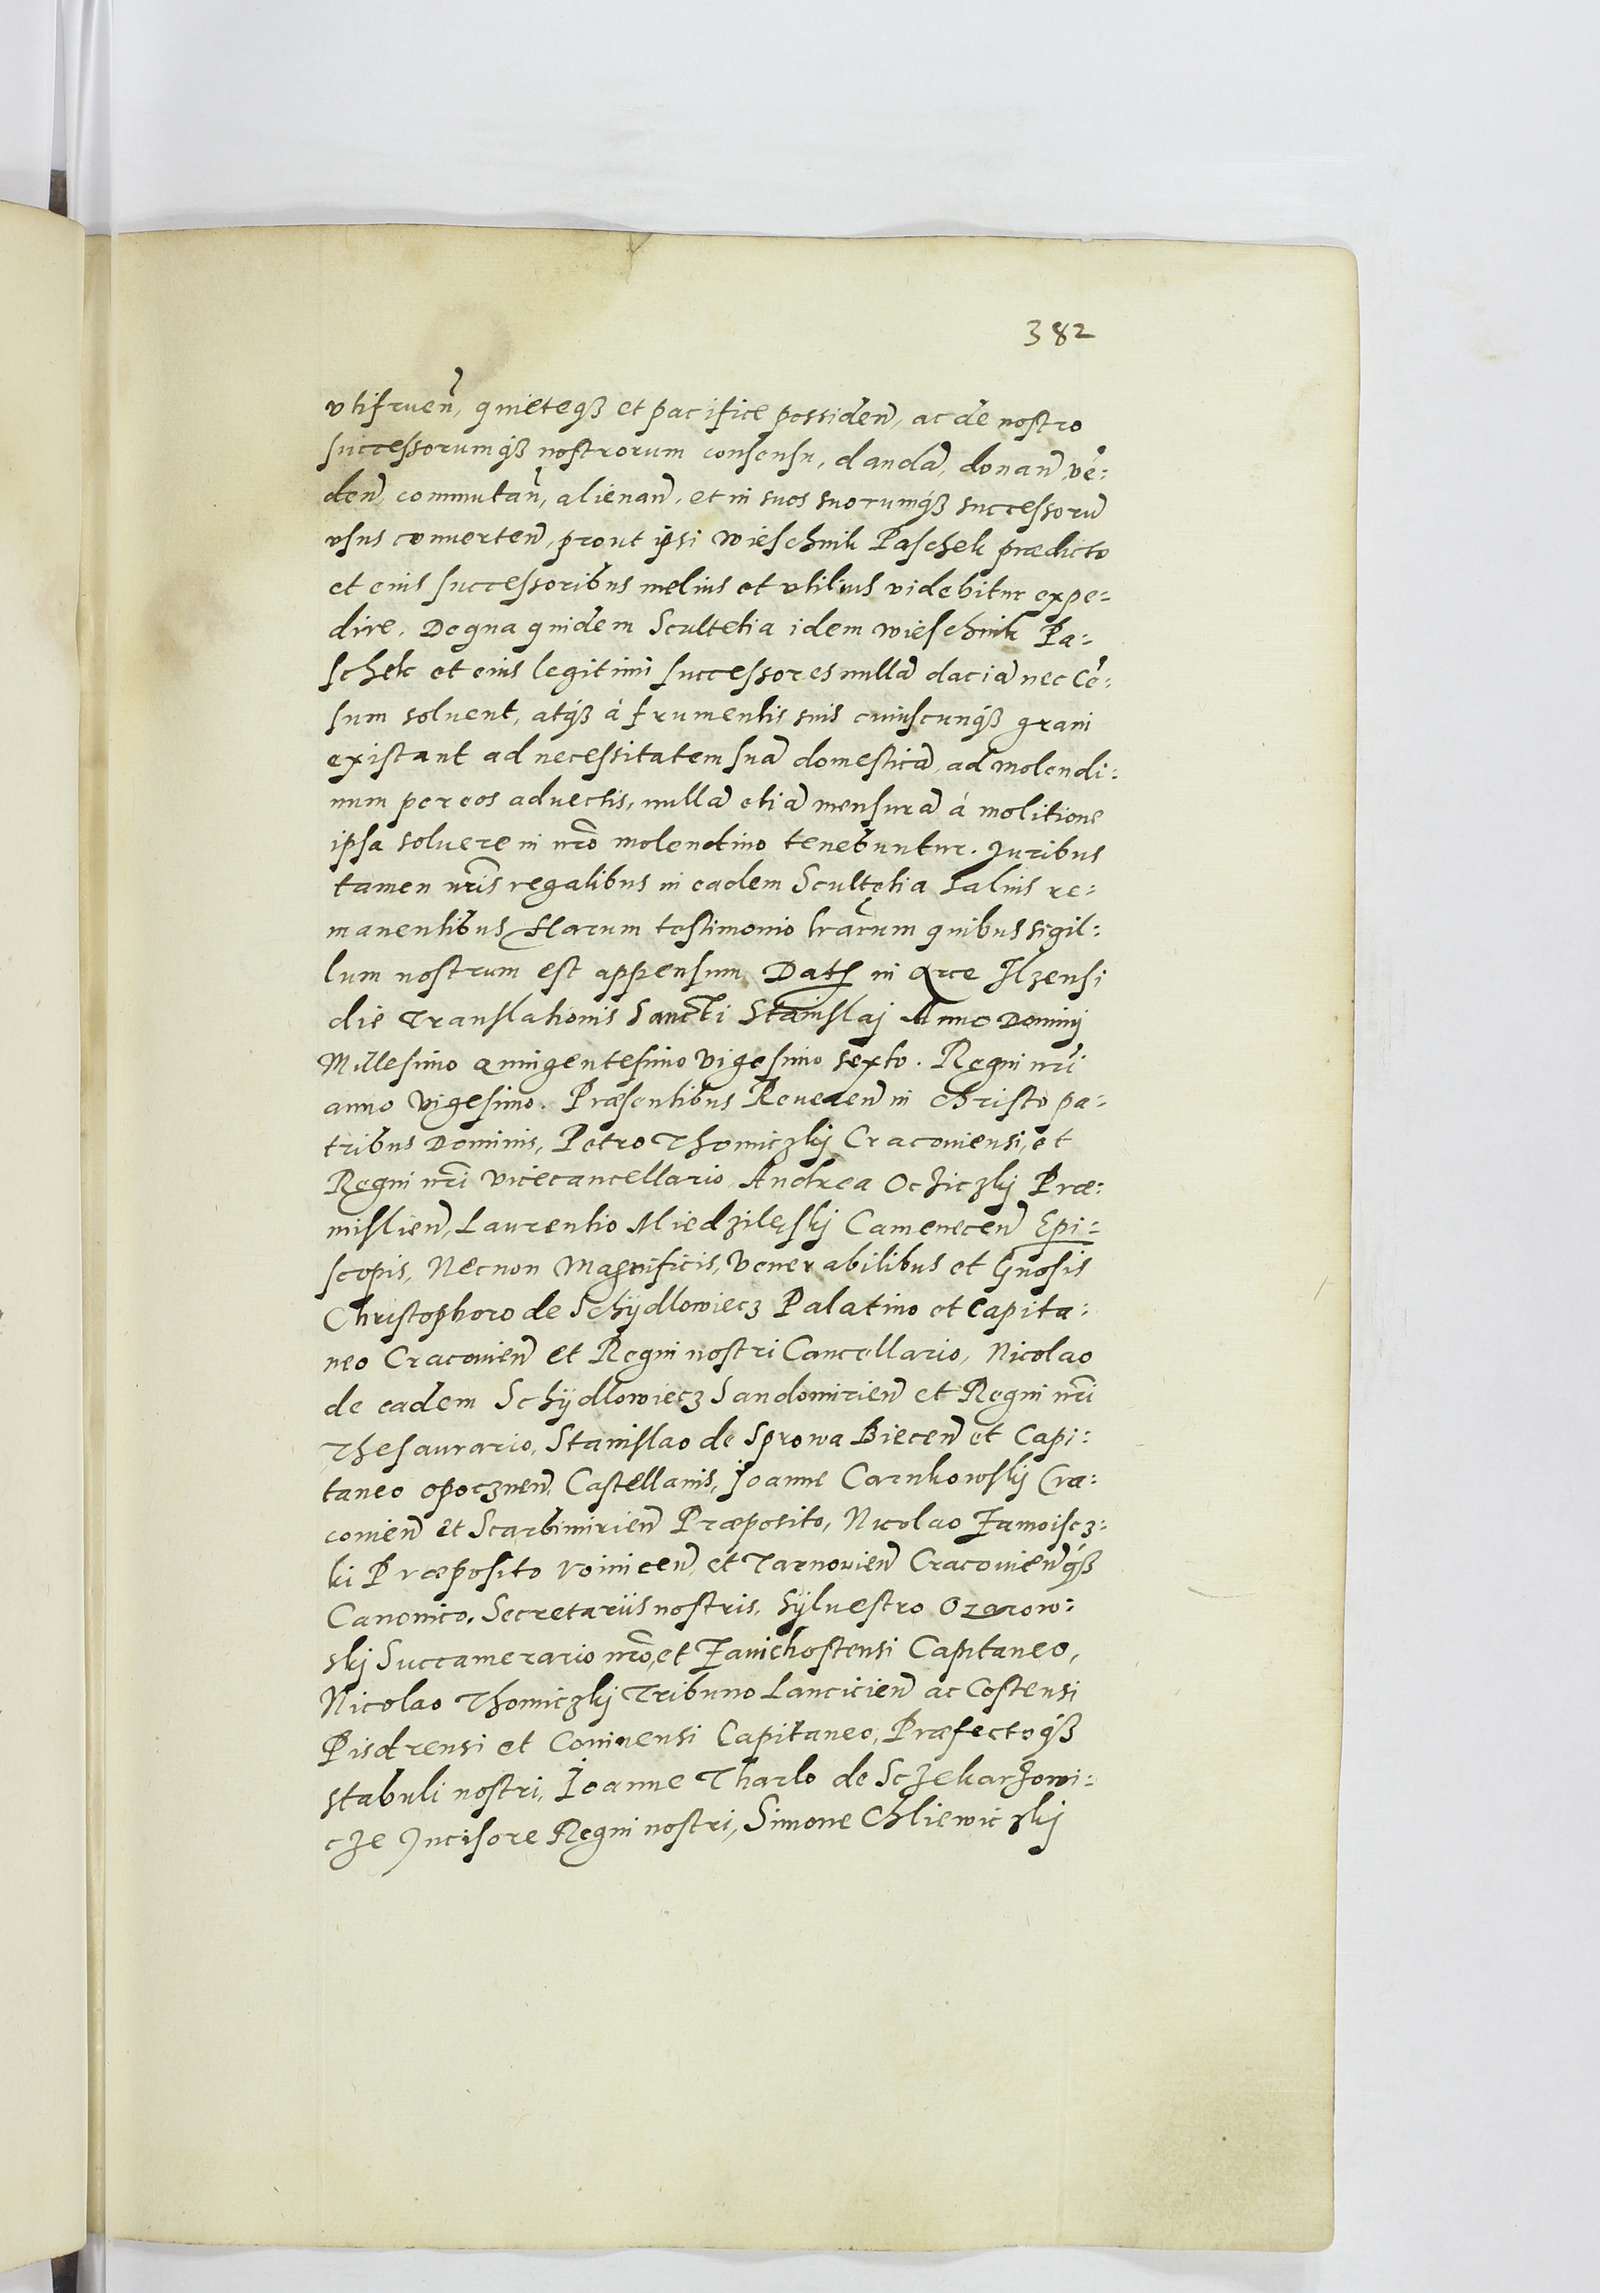 382
vtifruen̄, quieteq3 et pacifice possiden̄, ac de nostro
successorumq3 nostrorum consensu, dandā, donan̄, vē=
den̄, commutan̄, alienan̄, et in suos suorumq3 successorū
vsus conuerten̄, prout ipsi Wieschnik Paschek prædicto
et eius successoribus melius et vtilius videbitur expe=
dire. De qua quidem Scultetia idem Wieschnik Pa=
schek et eius legitimi successores nullā daciā nec cē=
sum soluent, atq3 à frumentis suis cuiuscunq3 grani
existant ad necessitatem suā domesticā, ad molendi=
num per eos aduectis, nullā etiā mensurā á molitione
ipsa soluere in nrō molendino tenebuntur. Juribus
tamen nrīs regalibus in eadem Scultetia saluis re=
manentibus Harum testimonio lrārum quibus sigil=
lum nostrum est appensum Dat in Arce Ilzensi
die Translationis Sancti Stanislaj Anno Dominj
Millesimo Quingentesimo Vigesimo sexto. Regni nrī
anno Vigesimo. Præsentibus Reueren̄ in Christo pa=
tribus Dominis, Petro Thomiczkj Cracouiensi, et
Regni nrī Vicecancellario, Andrea Ocziczkj Præ=
mislien̄, Laurentio Miedzileskj Camenecen̄ Epi=
scopis, Necnon Magnificis, Venerabilibus et Gnosis
Christophoro de Schÿdlowiecz Palatino et Capita=
neo Cracouien̄ et Regni nostri Cancellario, Nicolao
de eadem Schÿdlowiecz Sandomirien̄ et Regni nrī
Thesaurario, Stanislao de Sprowa Biecen̄ et Capi=
taneo opocznen̄ Castellanis, Joanne Carnkowskj Cra=
couien̄ et Scarbimirien̄ Præposito, Nicolao Zamoiscz=
ki Præposito Voinicen̄, et Tarnouien̄ Cracouien̄q3
Canonico, Secretariis nostris, Sÿluestro Ozarow=
skj Succamerario nrō, et Zauichostensi Capitaneo,
Nicolao Thomiczkj Tribuno Lancicien̄ ac Costensi
Pisdrensi et Coninensi Capitaneo, Præfectoq3
stabuli nostri, Joanne Tharlo de Sczekarzowi=
cze Incisore Regni nostri, Simone Chliewiczkj